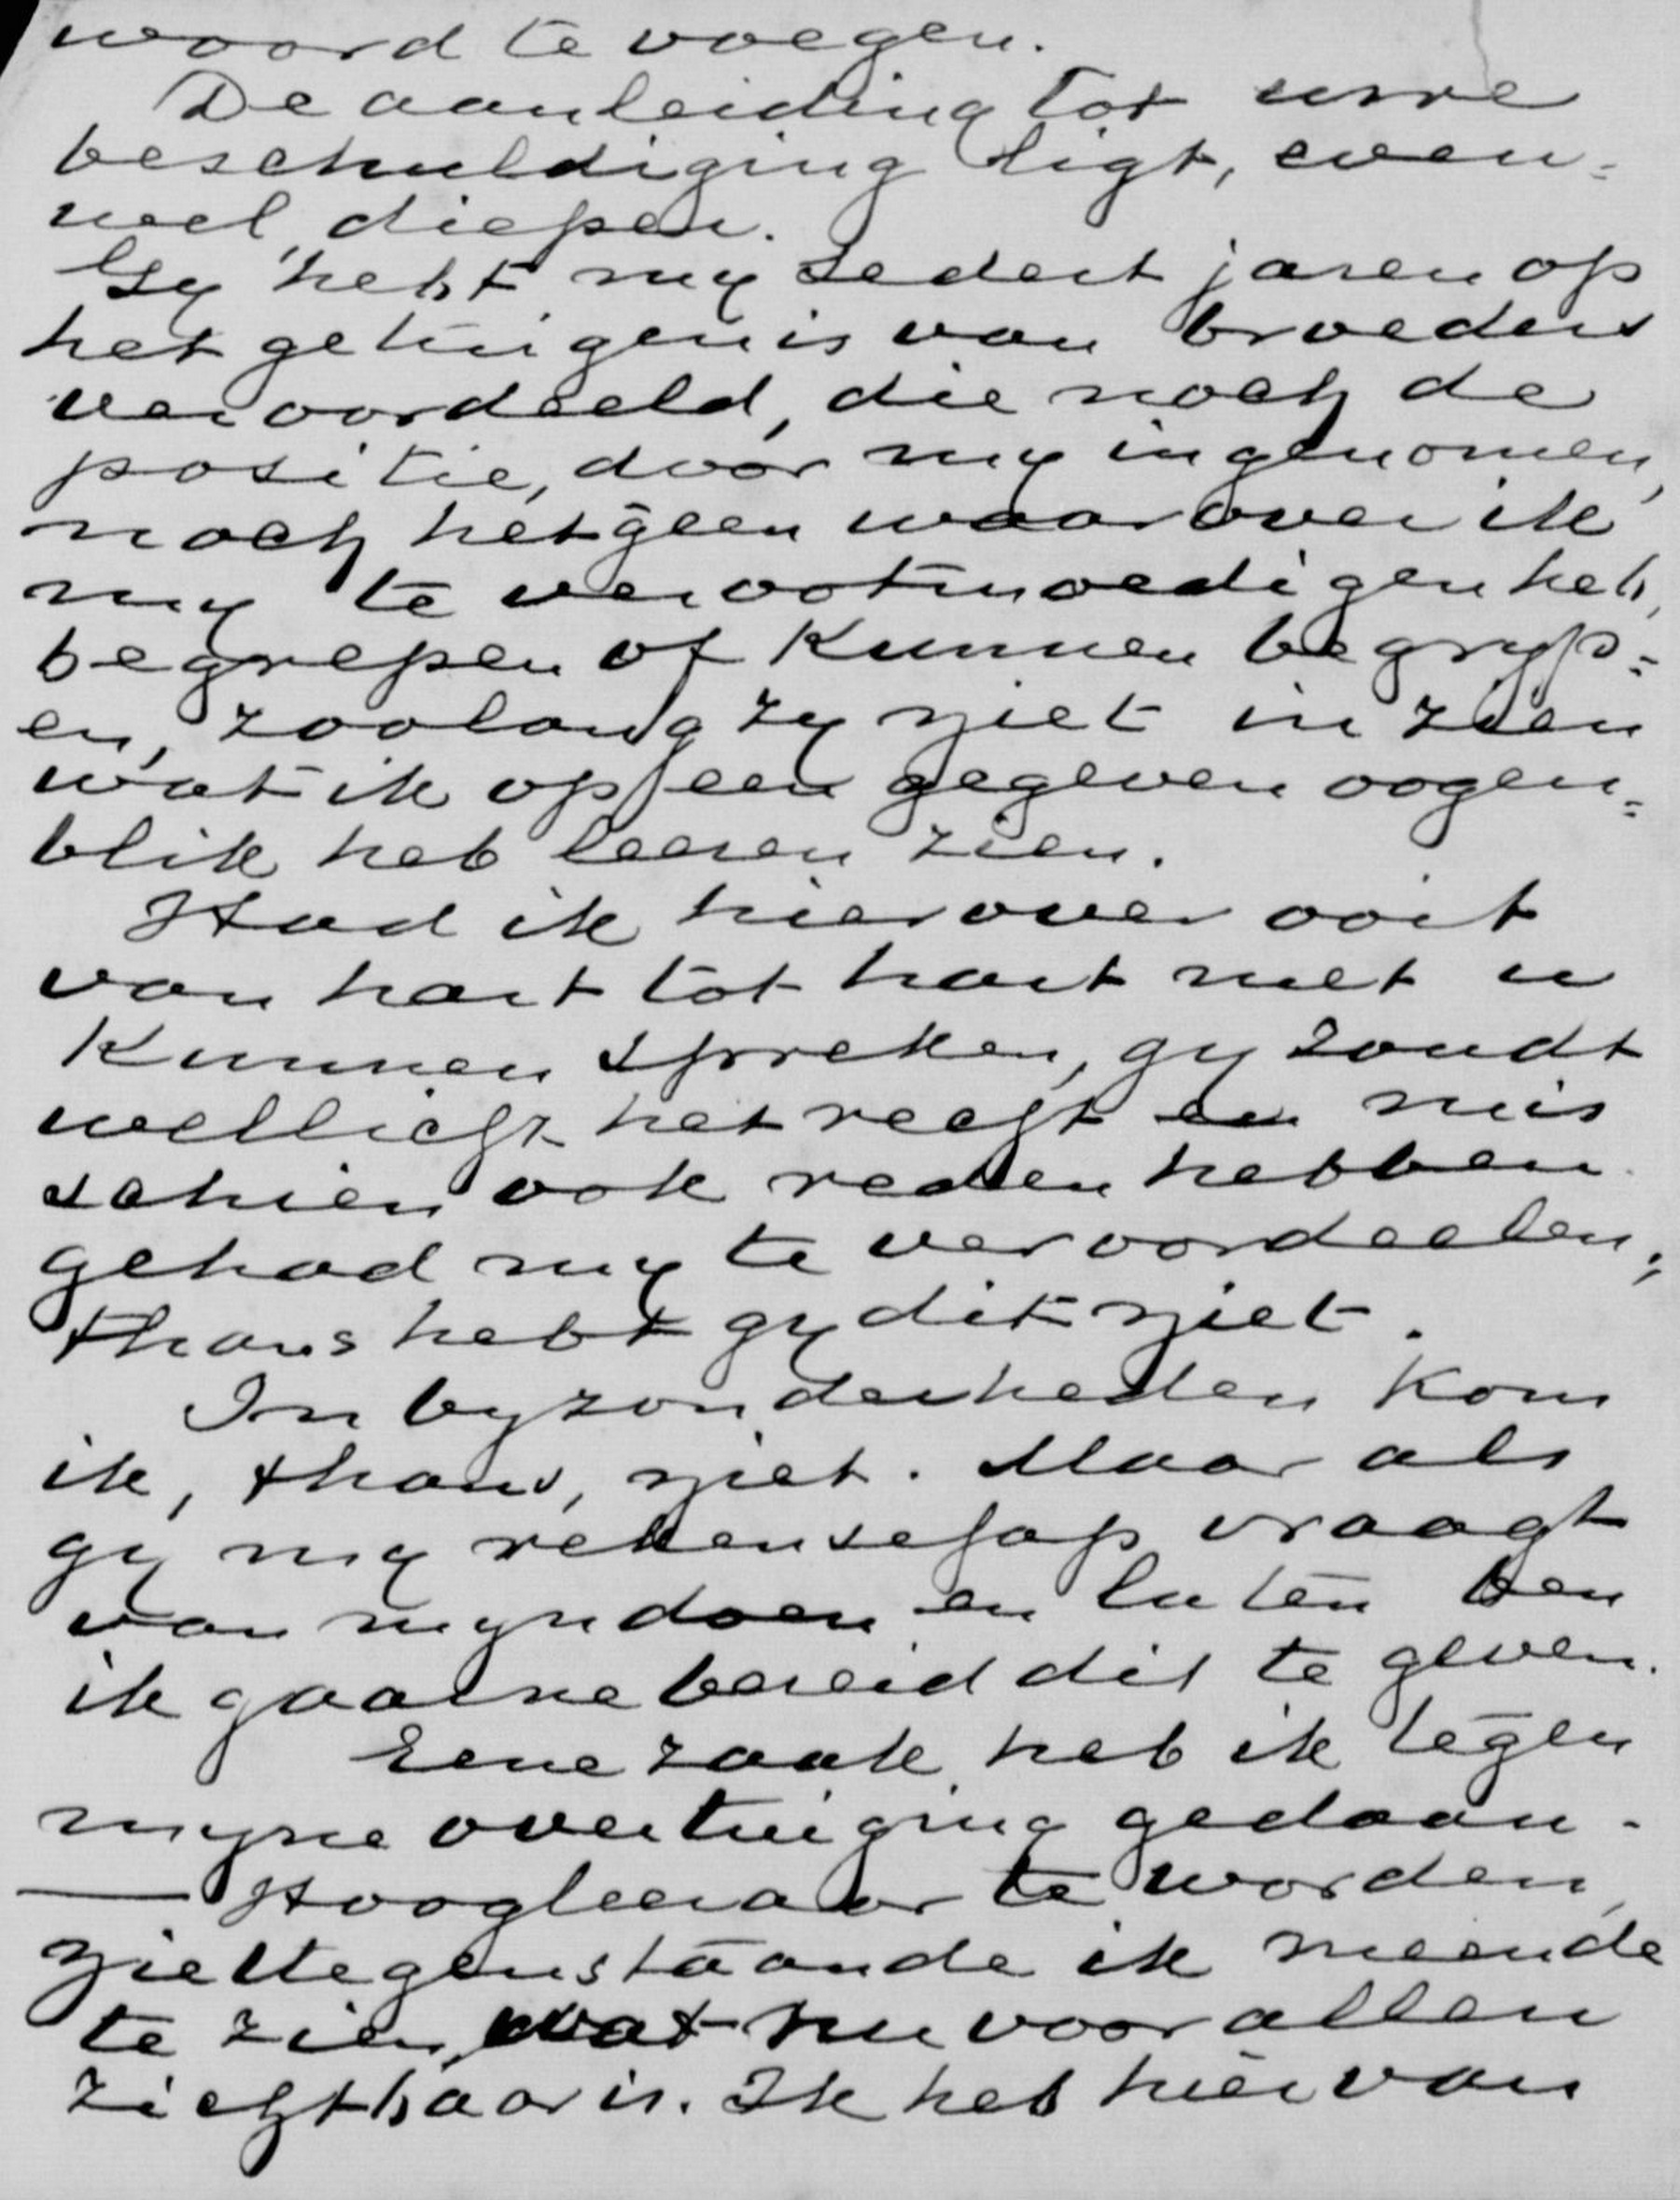 woord te voegen.
De aanleiding tot uwe
beschuldiging ligt, even=
wel, dieper.
Gy hebt my sedert jaren op
het getuigenis van broeders
veroordeeld, die noch de
positie, door my ingenomen,
noch hetgeen waarover ik
my te verootmoedigen heb,
begrepen of kunnen begryp=
en, zoolang zy niet in zien
wat ik op een gegeven oogen=
blik heb leeren zien.
Had ik hierover ooit
van hart tot hart met u
kunnen spreken, gy zoudt
wellicht het recht en mis
schien ook reden hebben
gehad my te veroordeelen;
thans hebt gy dit niet.
In byzonderheden kom
ik, thans, niet. Maar als
gy my rekenschap vraagt
van myn doen en laten ben
ik gaarne bereid dit te geven.
Eene zaak heb ik tegen
myne overtuiging gedaan.
— Hoogleeraar te worden,
niettegenstaande ik meende
te zien, wat nu voor allen
zichtbaar is. Ik heb hiervan